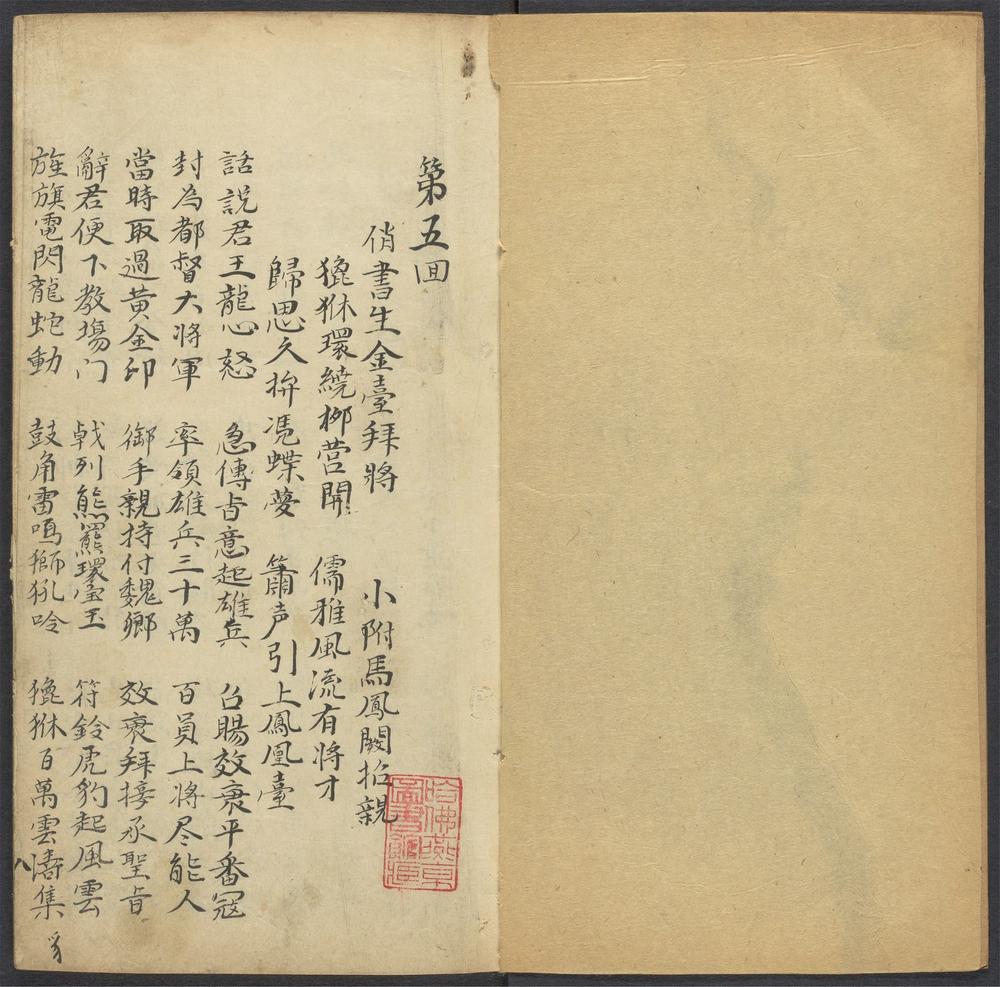 第五回
俏書生金臺拜將 小附馬鳳闕招親
貔貅環繞柳營開 儒雅風流有將才
歸思久拚凴蝶夢 簫声引上鳳凰臺
話說君王龍心怒 急傳旨意起雄兵 召賜效衷平番冦
封為都督大將軍 率領雄兵三十萬 百員上將尽能人
當時取過黄金印 御手親持付魏鄉 效衷拜接承聖旨
辭君便下教塲门 戟列熊羆環宝玉 符鈴虎豹起風雲
旌旗電閃龍蛇動 鼓角雷鳴獅吼吟 貔貅百萬雲濤集
哈佛燕京
圖書館